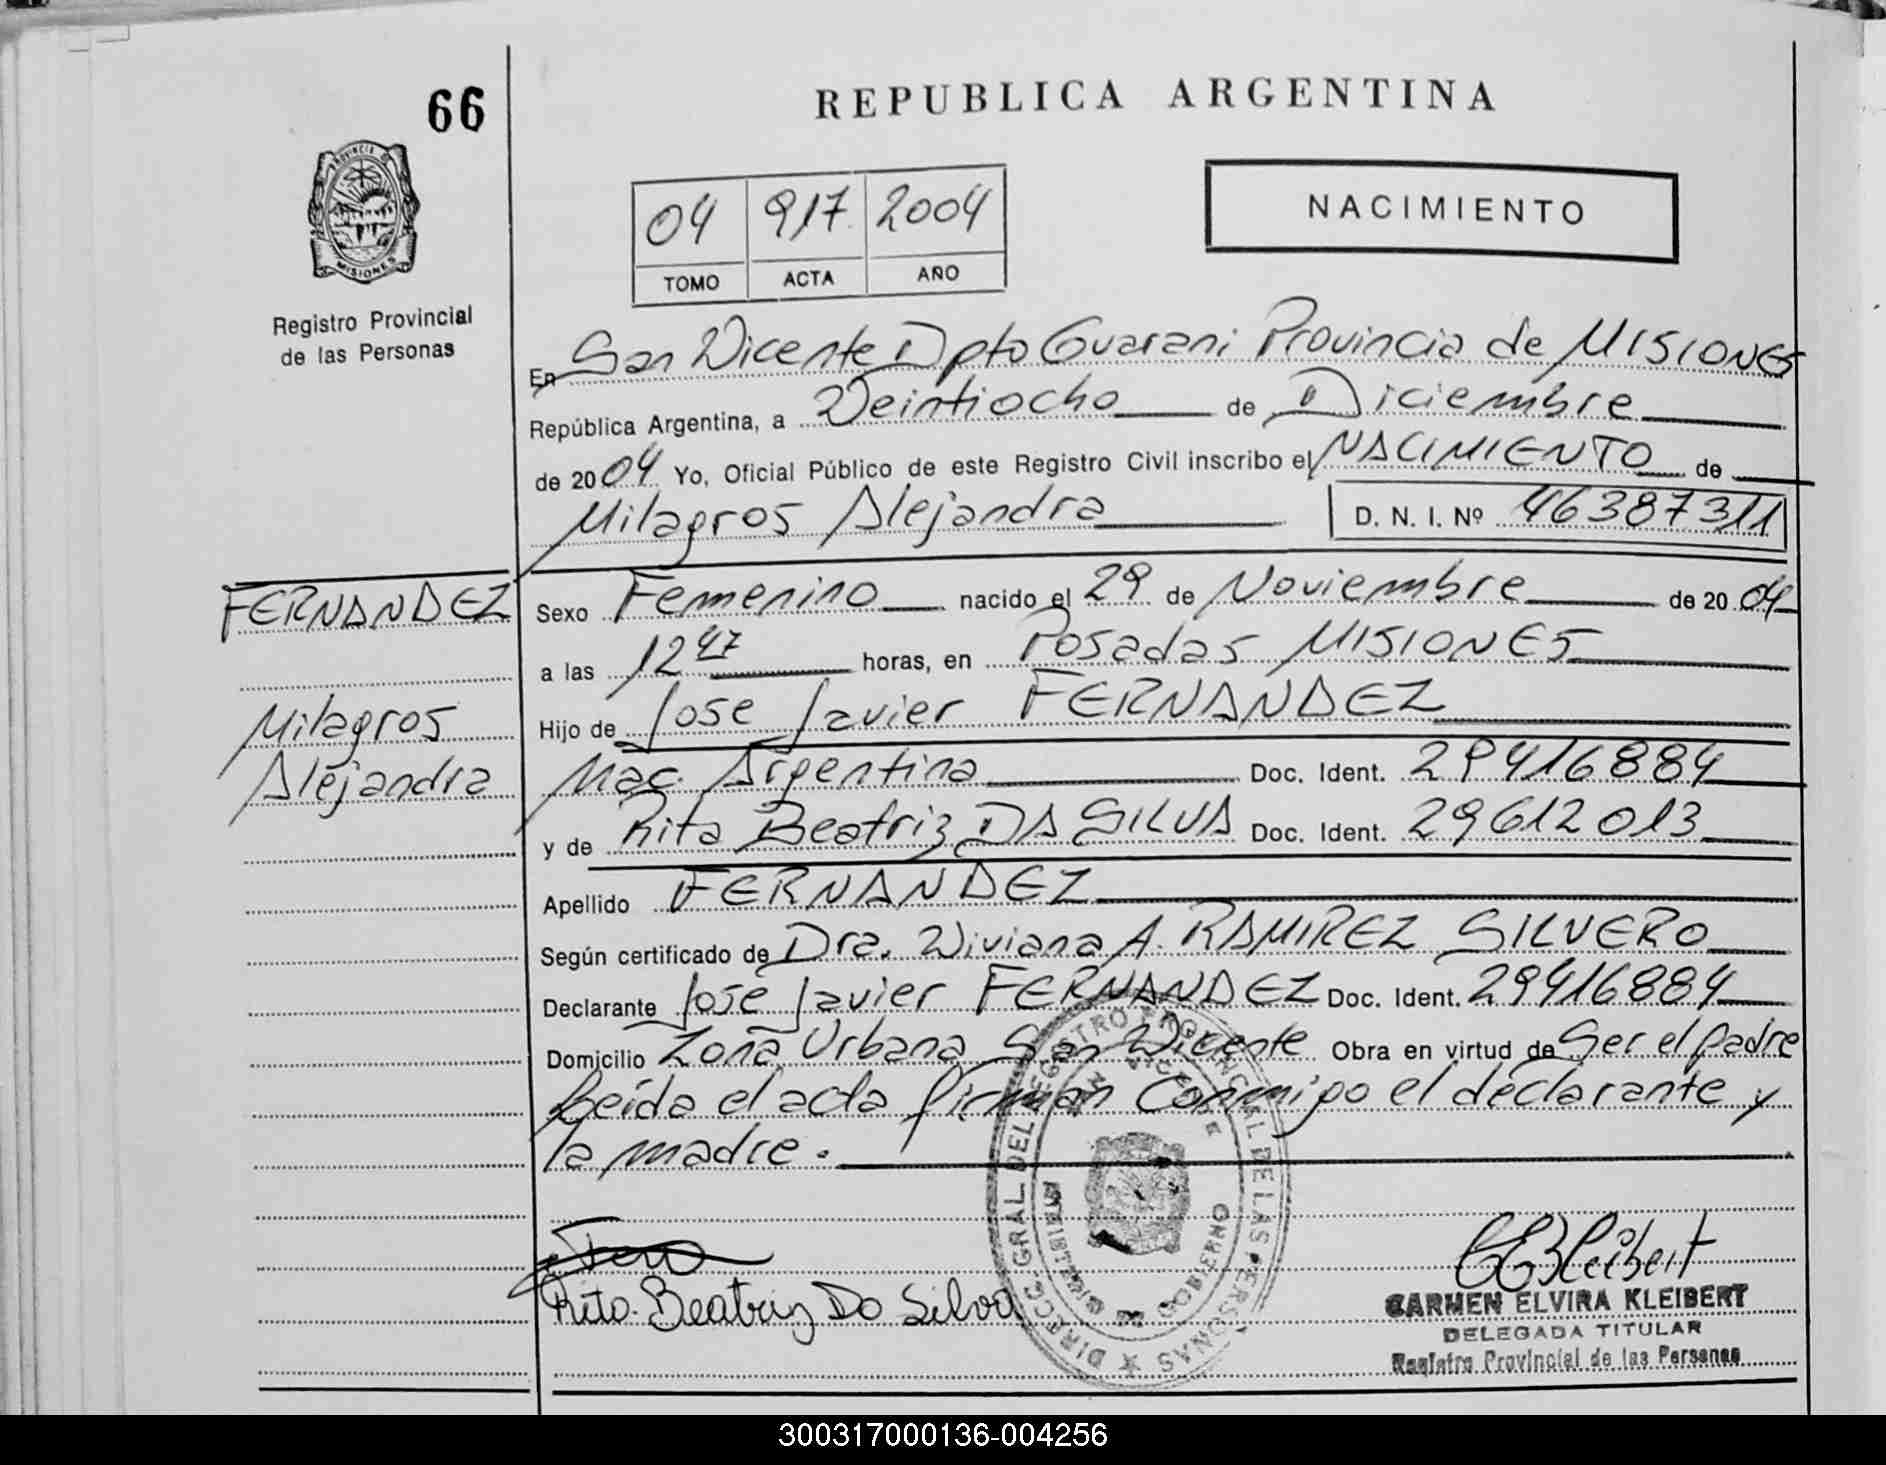 66
REPUBLICA ARGENTINA
PROVINCIA DE
MISIONES
Registro Provincial
de las Personas
04 917 2004
TOMO ACTA AÑO
NACIMIENTO
En San Vicente Dpto Guarani Provincia de MISIONES
República Argentina, a Veintiocho de Diciembre
de 2004 Yo, Oficial Público de este Registro Civil inscribo el NACIMIENTO de
Milagros Alejandra D. N. I. Nº 46387311
FERNANDEZ
Milagros
Alejandra
Sexo Femenino nacido el 29 de Noviembre de 2004
a las 12 47 horas, en Posadas MISIONES
Hijo de Jose Javier FERNANDEZ
Nac. Argentina Doc. Ident. 29416884
y de Rita Beatriz DA SILVA Doc. Ident. 29612013
Apellido FERNANDEZ
Según certificado de Dra. Viviana A. RAMIREZ SILVERO
Declarante Jose Javier FERNANDEZ Doc. Ident. 29416884
Domicilio Zona Urbana San Vicente Obra en virtud de Ser el padre
Leída el acta firman Conmigo el declarante y
la madre.
Rita Beatriz Da Silva
DIRECC. GRAL. DEL REGISTRO PROVINCIAL DE LAS PERSONAS
SAN VICENTE
CEBKleibert
CARMEN ELVIRA KLEIBERT
DELEGADA TITULAR
Registro Provincial de las Personas
300317000136-004256